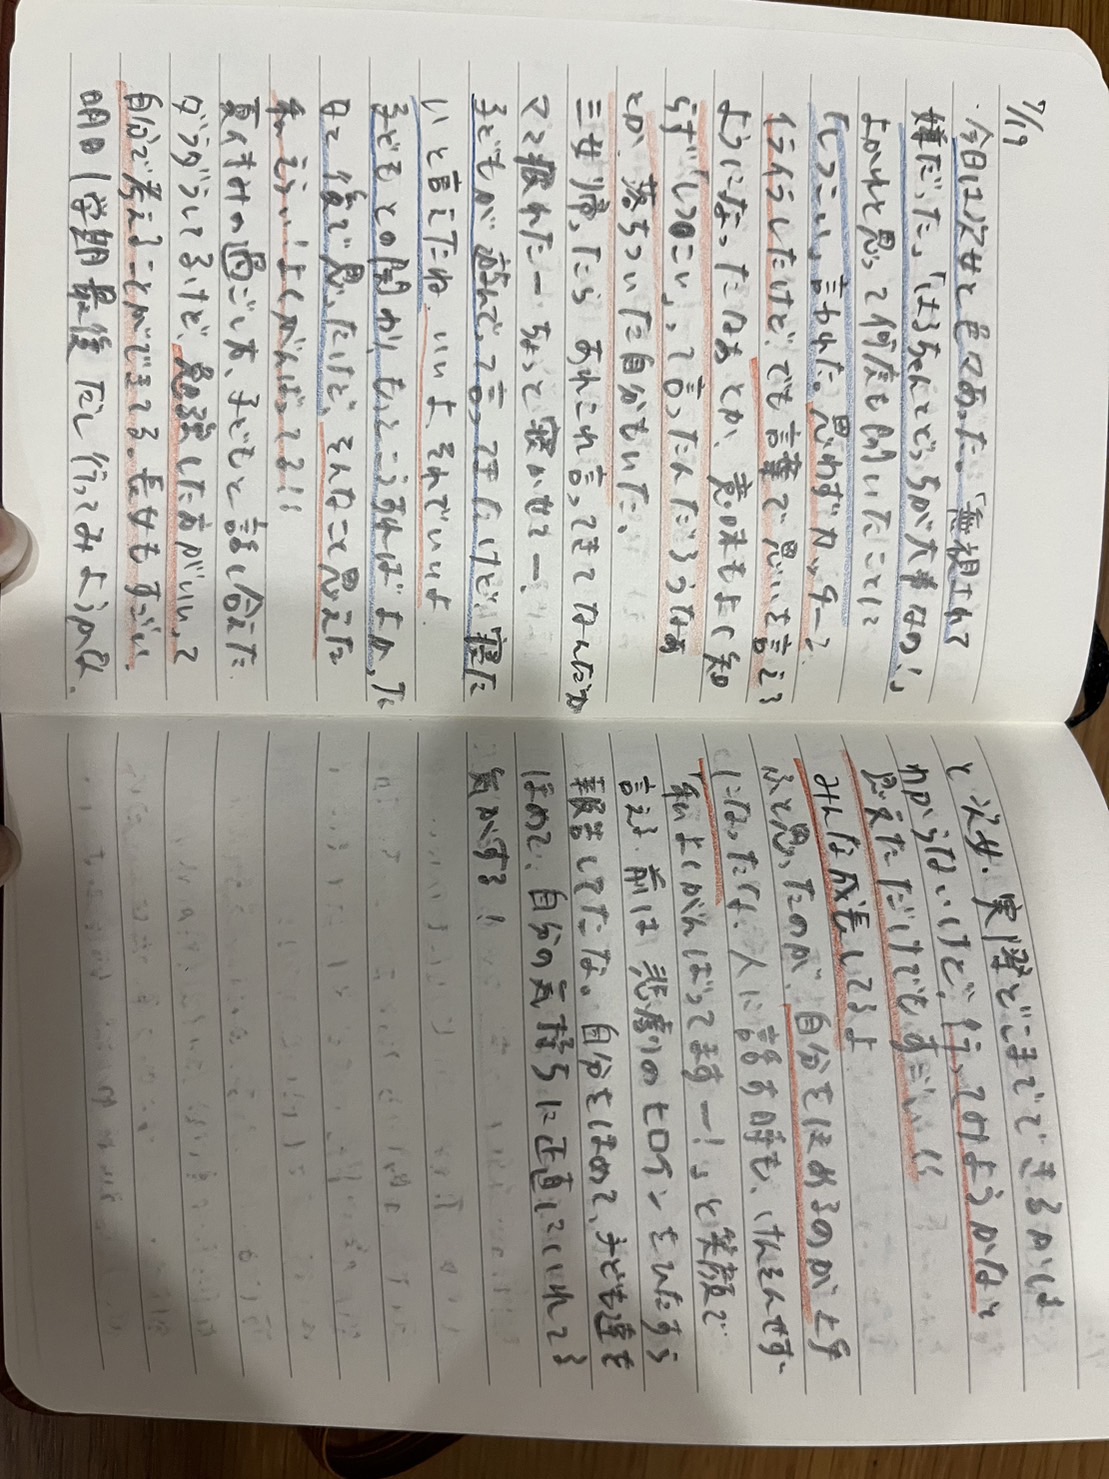 7/19
・今日は次女と色々あった。「無視されて
嫌だった」「はるちゃんとどっちが大事なの!」
よかれと思って何度も聞いたことに
しつこい、言われた。思わずカッチーン
イライラしたけど、でも言葉で思いを言える
ようになったなぁとか、意味もよく知
らず「しつこい」って言ったんだろうなぁ
とか、落ちついた自分もいた。
三女帰ったらあれこれ言ってきてなんだか
ママ疲れたー、ちょっと寝かせてー!
子どもが遊んでって言ってきたけど「寝た
い」と言えたね。いいよ、それでいいよ
子どもとの関わり、もっとこうすればよかった
なと後で思ったけど、そんなこと思えた
私、えらい!よくがんばってる!!
夏休みの過ごし方、子どもと話し合えた
ダラダラしてるけど、勉強した方がいいって
自分で考えることができてる。長女もすごい。
明日1学期最後だし行ってみようかな
と次女。実際どこまでできるかは
わからないけど、行ってみようかなと
思えただけでもすごい
みんな成長してるよ
ふと思ったのが、自分をほめるのが上手
になったな。人に話す時も、けんそんせず、
「私よくがんばってますー!」と笑顔で
言える。前は悲劇のヒロインをひたすら
報告してたな。自分をほめて、子ども達も
ほめて、自分の気持ちに正直にいれてる
気がする!